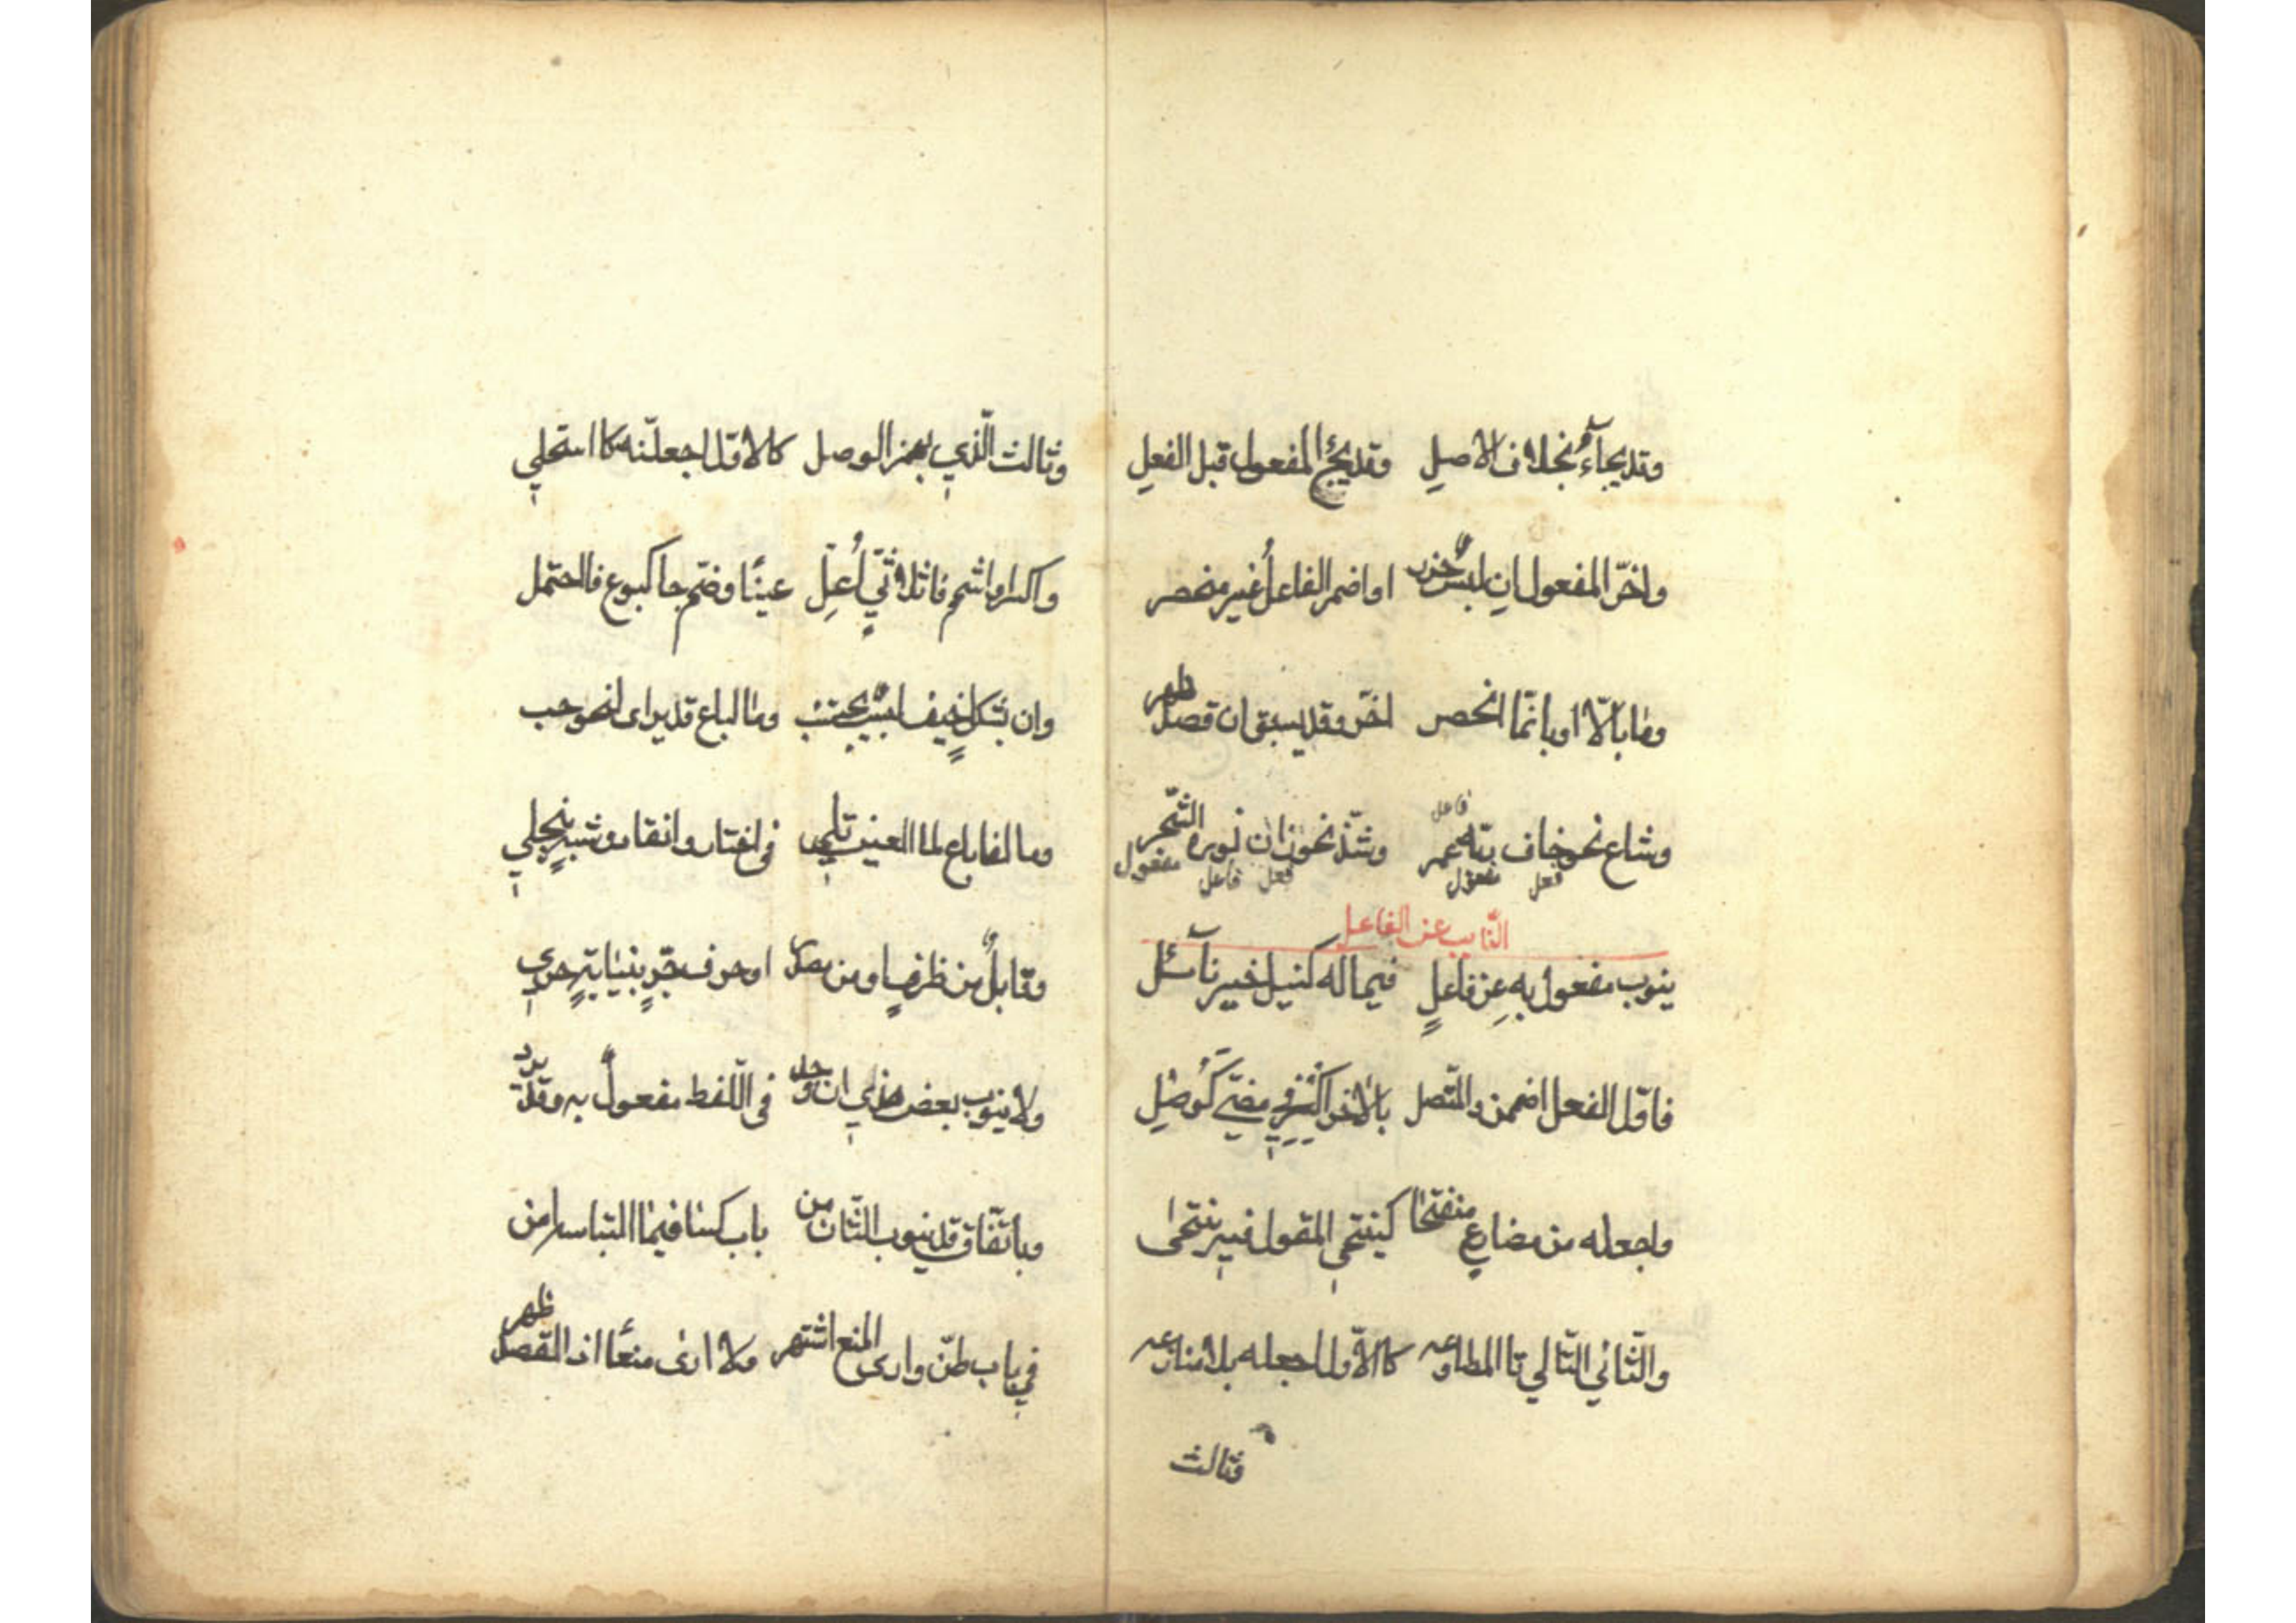 وقد يجآءُ بخلاف الاصلِ وقد يجئ المفعول قبل الفعلِ
واخّر المفعول انِ لبسٌ حذر او اضمر الفاعلُ غير منحصر
وما بالّا او بانّما انحصر اخّر وقد يسبق ان قصد ظهر
فاعل
وشاع نحو خاف ربّه عمر وشذّ نحو زان نوره الشّجر
فعل مفعول فعل فاعل مفعول
النّايب عن الفاعل
ينوب مفعول به عن فاعلٍ فيما له كنيل خير نآئل
فاوّل الفعل اضممن والمتّصل بالاخر اكسر في مضيّ كَوُصِل
واجعله من مضارعٍ منفتحا كينتحي المقول فيه ينتحى
والثّاني التّالي تا المطاوعه كالاوّل اجعله بلا منازعه
وثالث
وثالث الّذي بهمز الوصل كالاوّل اجعلنّه كاستحلي
واكسر او اشمم فا ثلاثيّ اُعِلّ عينًا وضمّ جا كبوع فاحتمل
وان بشكلٍ خيف لبسٌ يجتنب وما لباع قد يرى لنحو حب
وما لفا باع لما العين تلي في اختار وانقاد وشبهٍ ينجلي
وقابلٌ من ظرفٍ او من مصدر او حرف جرٍّ بنيابةٍ حري
ولا ينوب بعض هذي ان وجد في اللّفظ مفعولٌ به وقد يرد
وباتّفاق قد ينوب الثّان من باب كسا فيما التباسه امن
في باب ظنّ وارى المنع اشتهر ولا ارى منعًا اذا القصد ظهر